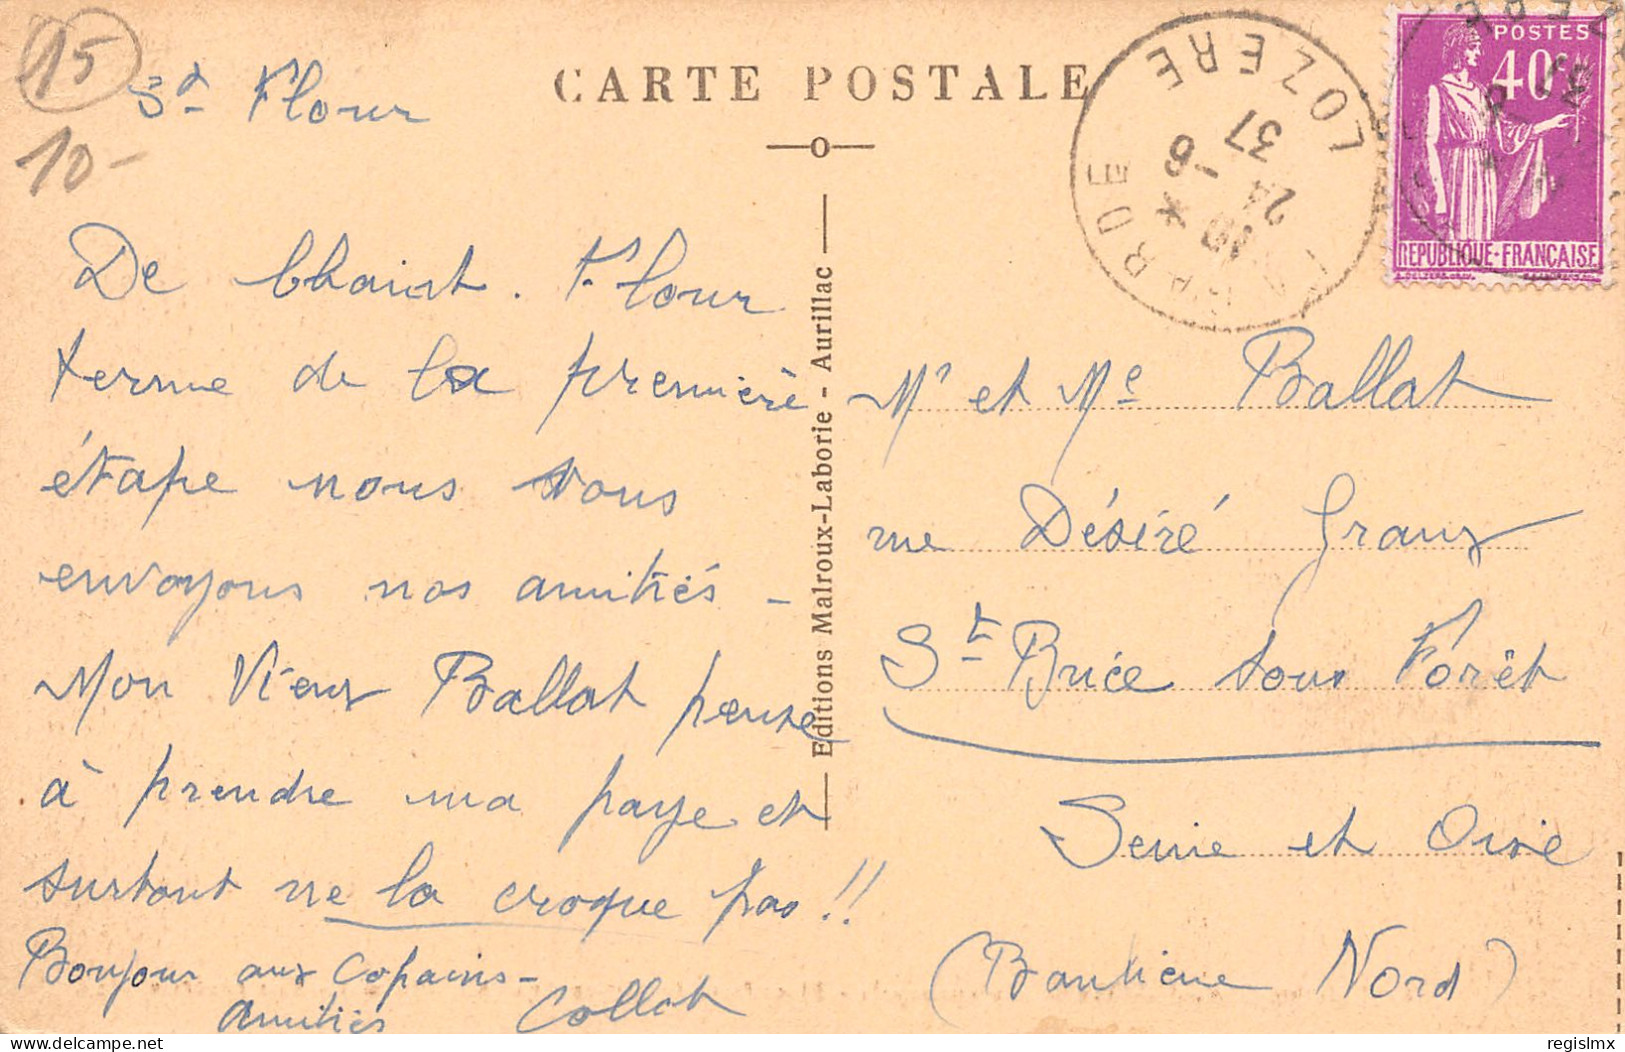 15
10-
St Flour
CARTE POSTALE
De Chaint. Flour
terme de la première
étape nous vous
envoyons nos amitiés -
Mon Vieux Ballat pense
à prendre ma paye et
surtout ne la croque pas !!
Bonjour aux Copains -
Amitiés Collat
Editions Malroux-Laborie - Aurillac
LOZERE
10 *
24 - 6
37
POSTES
40c
REPUBLIQUE-FRANÇAISE
Mr et Me Ballat
rue Désiré Graux
St Brice sous Forêt
Seine et Oise
(Banlieue Nord)
delcampe.net
regislmx